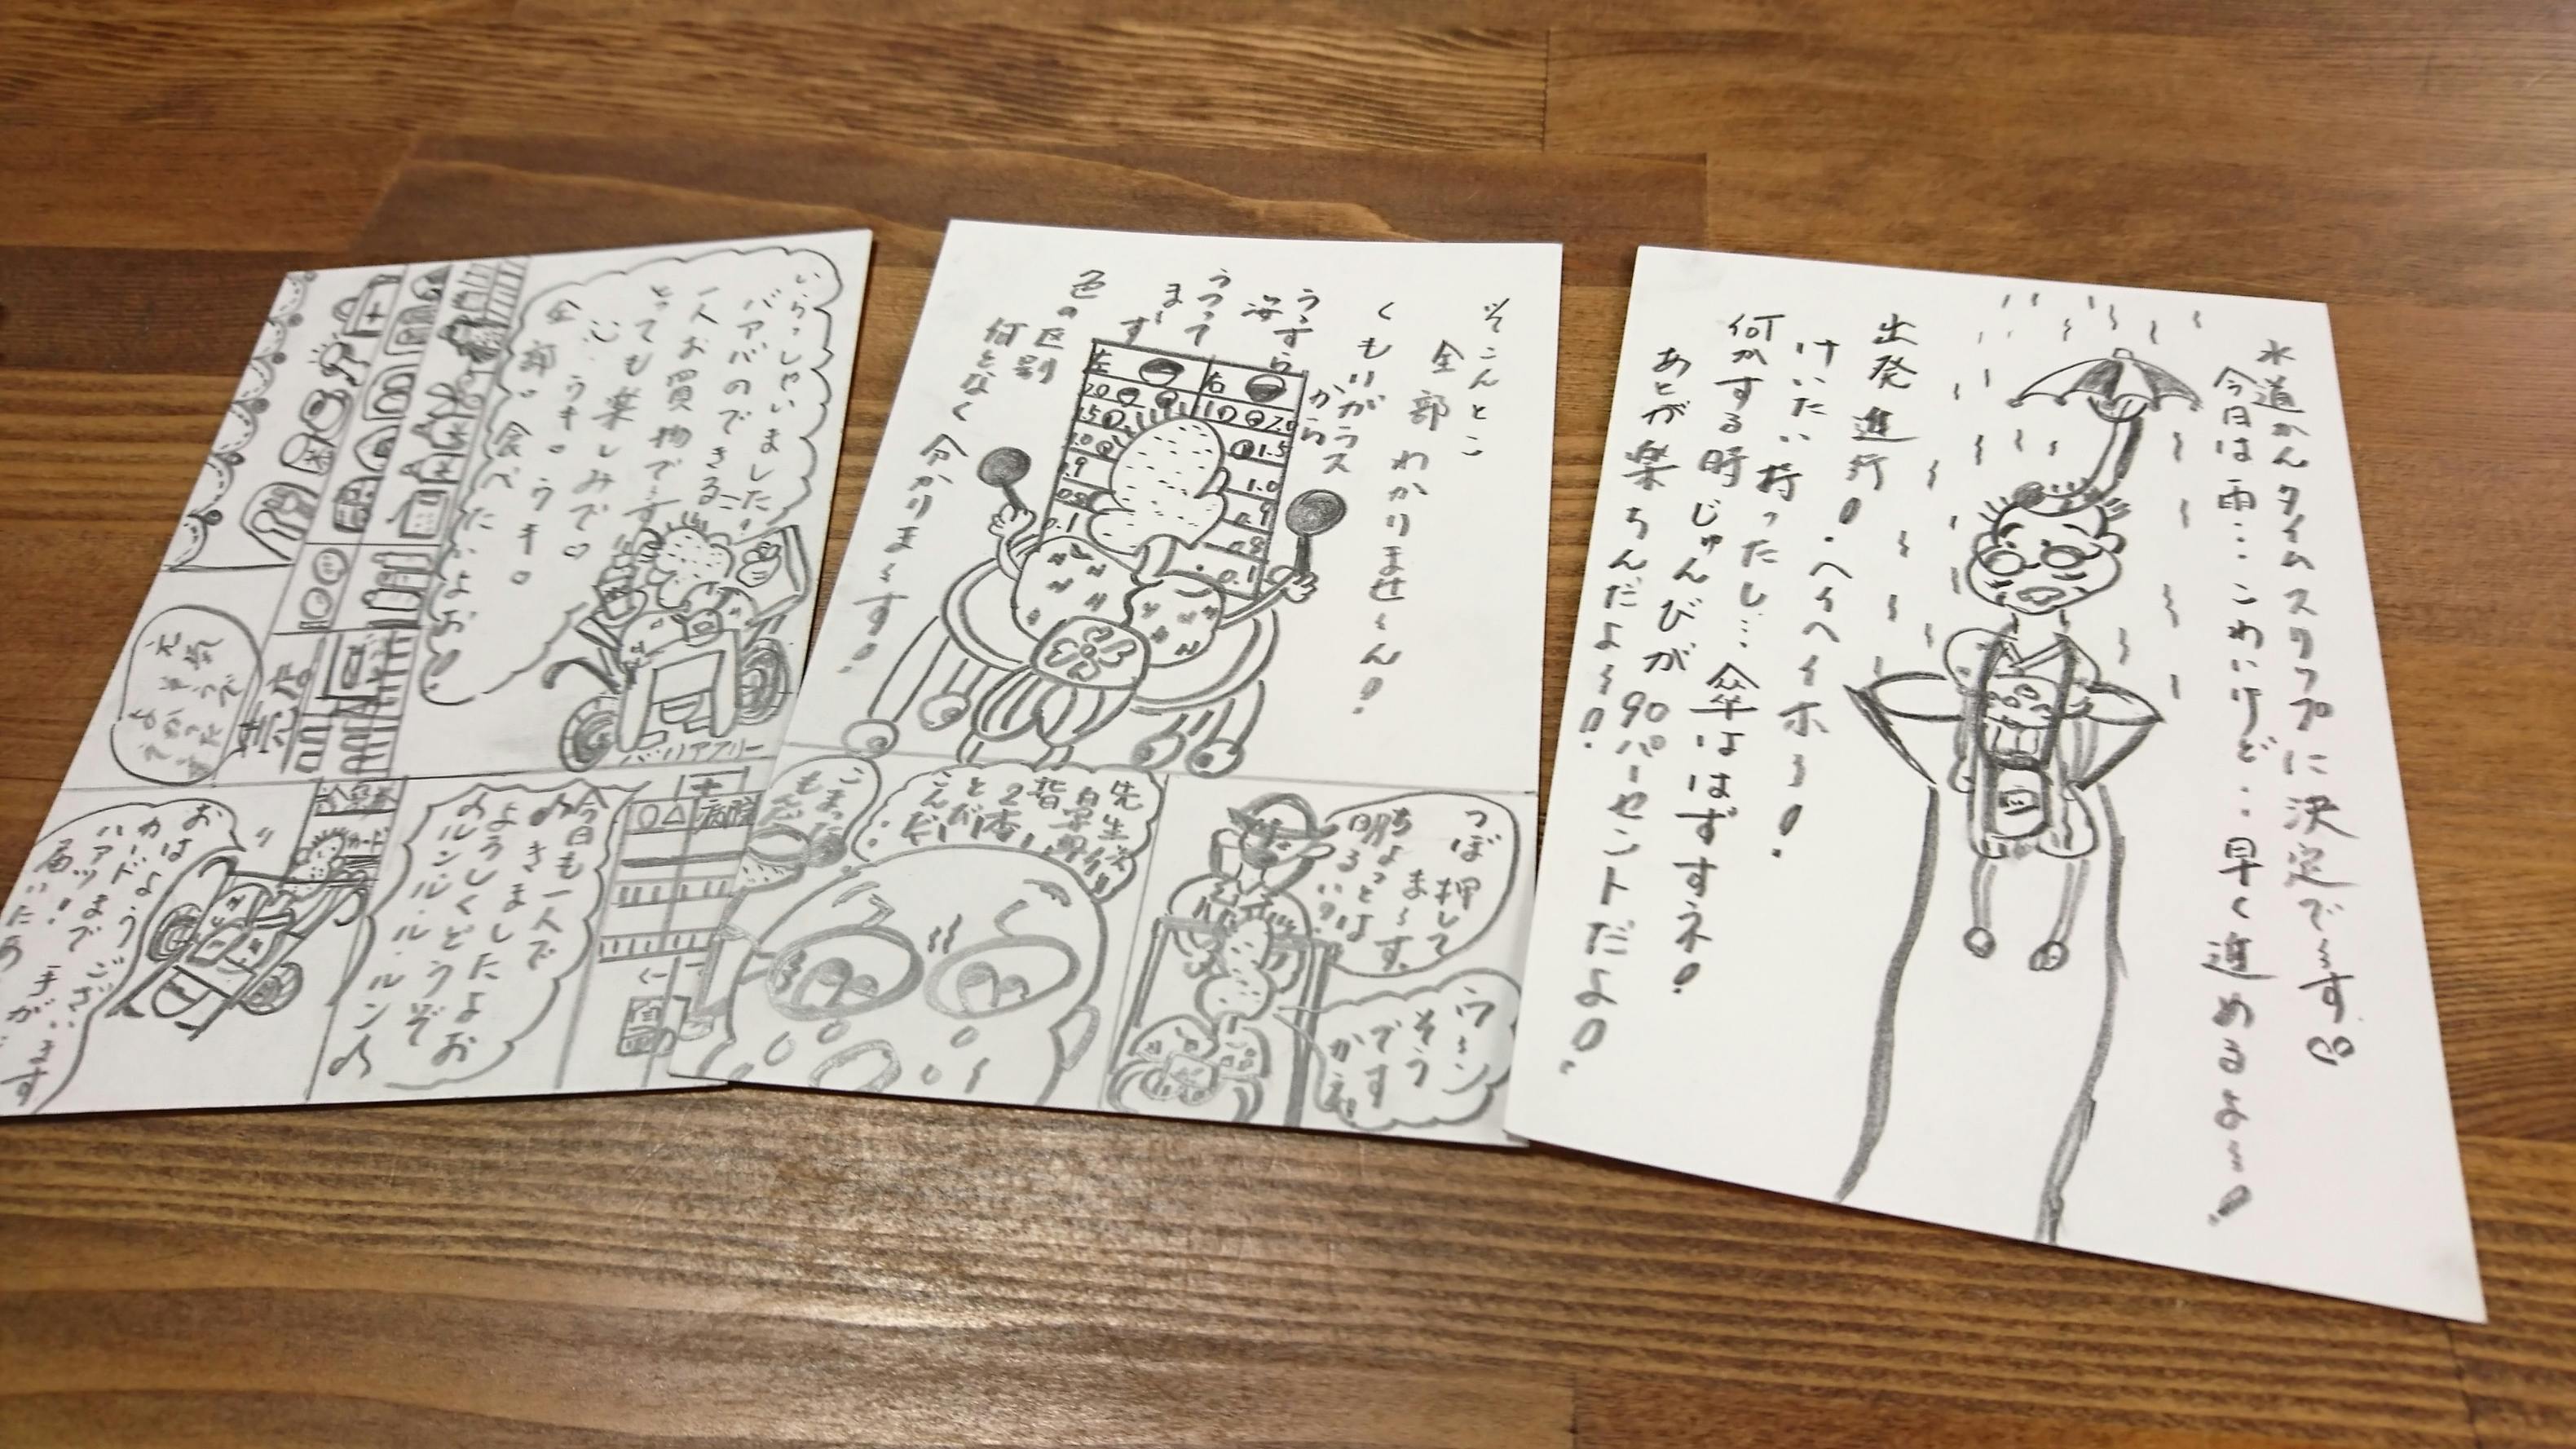 水道かんタイムスリップに決定で～す
今日は雨…こわいけど…早く進めるよ～!
出発進行!・ヘイヘイホ～!
けいたい持ったし…傘ははずすネ!
何かする時じゅんびが90パーセントだよ!
あとが楽ちんだよ～!
そこんとこ
全部わかりませ～ん!
くもりがラス
から
うすら
海
うつって
ます
色の区別
何となく分かります～す!
左
右
2.0
1.5
1.0
0.1
2.0
1.5
1.0
0.1
つぼ押して
ま～す。
ちょっとは
明るい?
ウ～ン
そう
ですか
先生
指2本
こまった
もんだ
いらっしゃいました!
バアバのできる
一人お買物です
とっても楽しみで
ウキウキ
全部食べたいよお!
バリアフリー
売店
元気そうで
よかったです
病院
今日も一人で
きましたよお
よろしくどうぞ
ルンルンルン
カード
おはようございます
カードまで手が
届いたあ